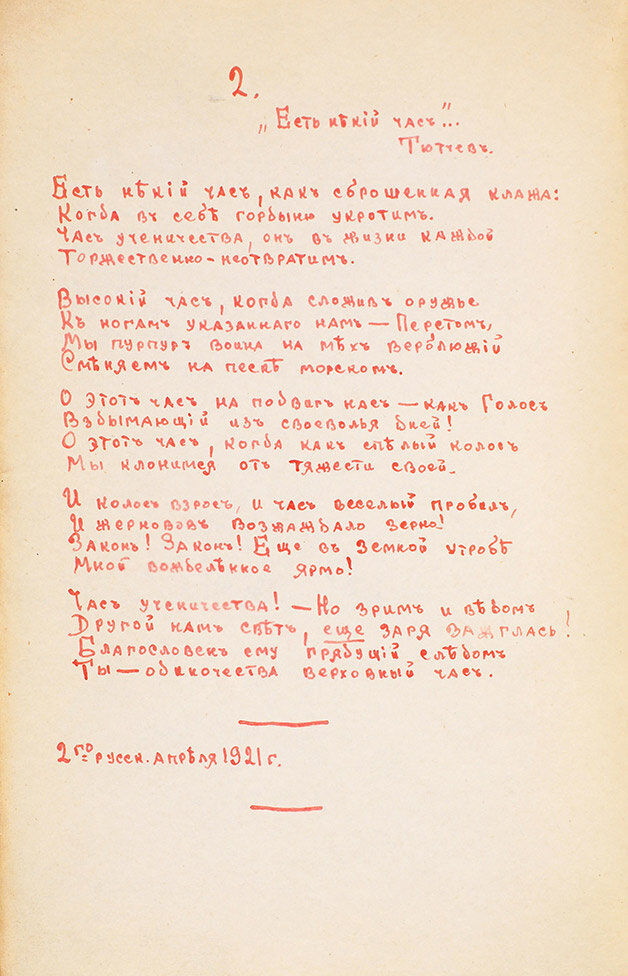 2.
„Есть нѣкій часъ“...
Тютчевъ.
Есть нѣкій часъ, какъ сброшенная клажа:
Когда въ себѣ гордыню укротимъ.
Часъ ученичества, онъ въ жизни каждой
Торжественно-неотвратимъ.
Высокій часъ, когда сложивъ оружье
Къ ногамъ указаннаго намъ — Перстомъ,
Мы пурпуръ воина на мѣхъ верблюжій
Смѣняемъ на пескѣ морскомъ.
О этотъ часъ на подвигъ насъ — какъ Голосъ
Вздымающій изъ своеволья дней!
О этотъ часъ, когда какъ спѣлый колосъ
Мы клонимся отъ тяжести своей.
И колосъ взросъ, и часъ веселый пробилъ,
И жернововъ возжаждало зерно!
Законъ! Законъ! Еще въ земной утробѣ
Мной вожделѣнное ярмо!
Часъ ученичества! — Но зримъ и вѣдомъ
Другой намъ свѣтъ, еще заря зажглась!
Благословенъ ему грядущій слѣдомъ
Ты — одиночества верховный часъ.
2го русск. апрѣля 1921 г.